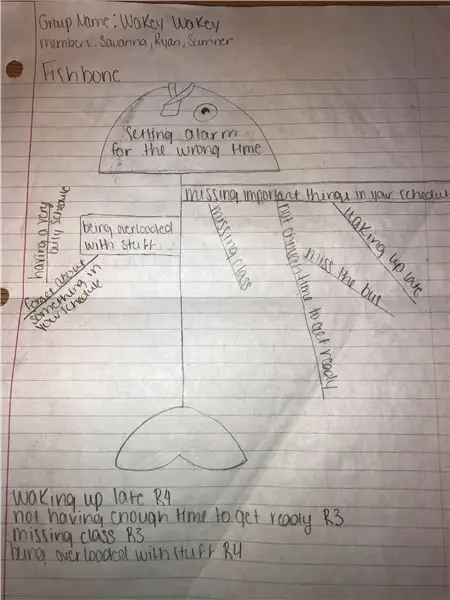 Group Name: Wakey Wakey
members: Savanna, Ryan, Sumner
Fishbone
Setting alarm
for the wrong time
missing important things in your schedul
having a very
busy schedule
being overloaded
with stuff
forget about
something in
your schedule
missing class
not enough time to get ready
miss the bus
waking up late
waking up late R4
not having enough time to get ready R3
missing class R3
being overloaded with stuff R4